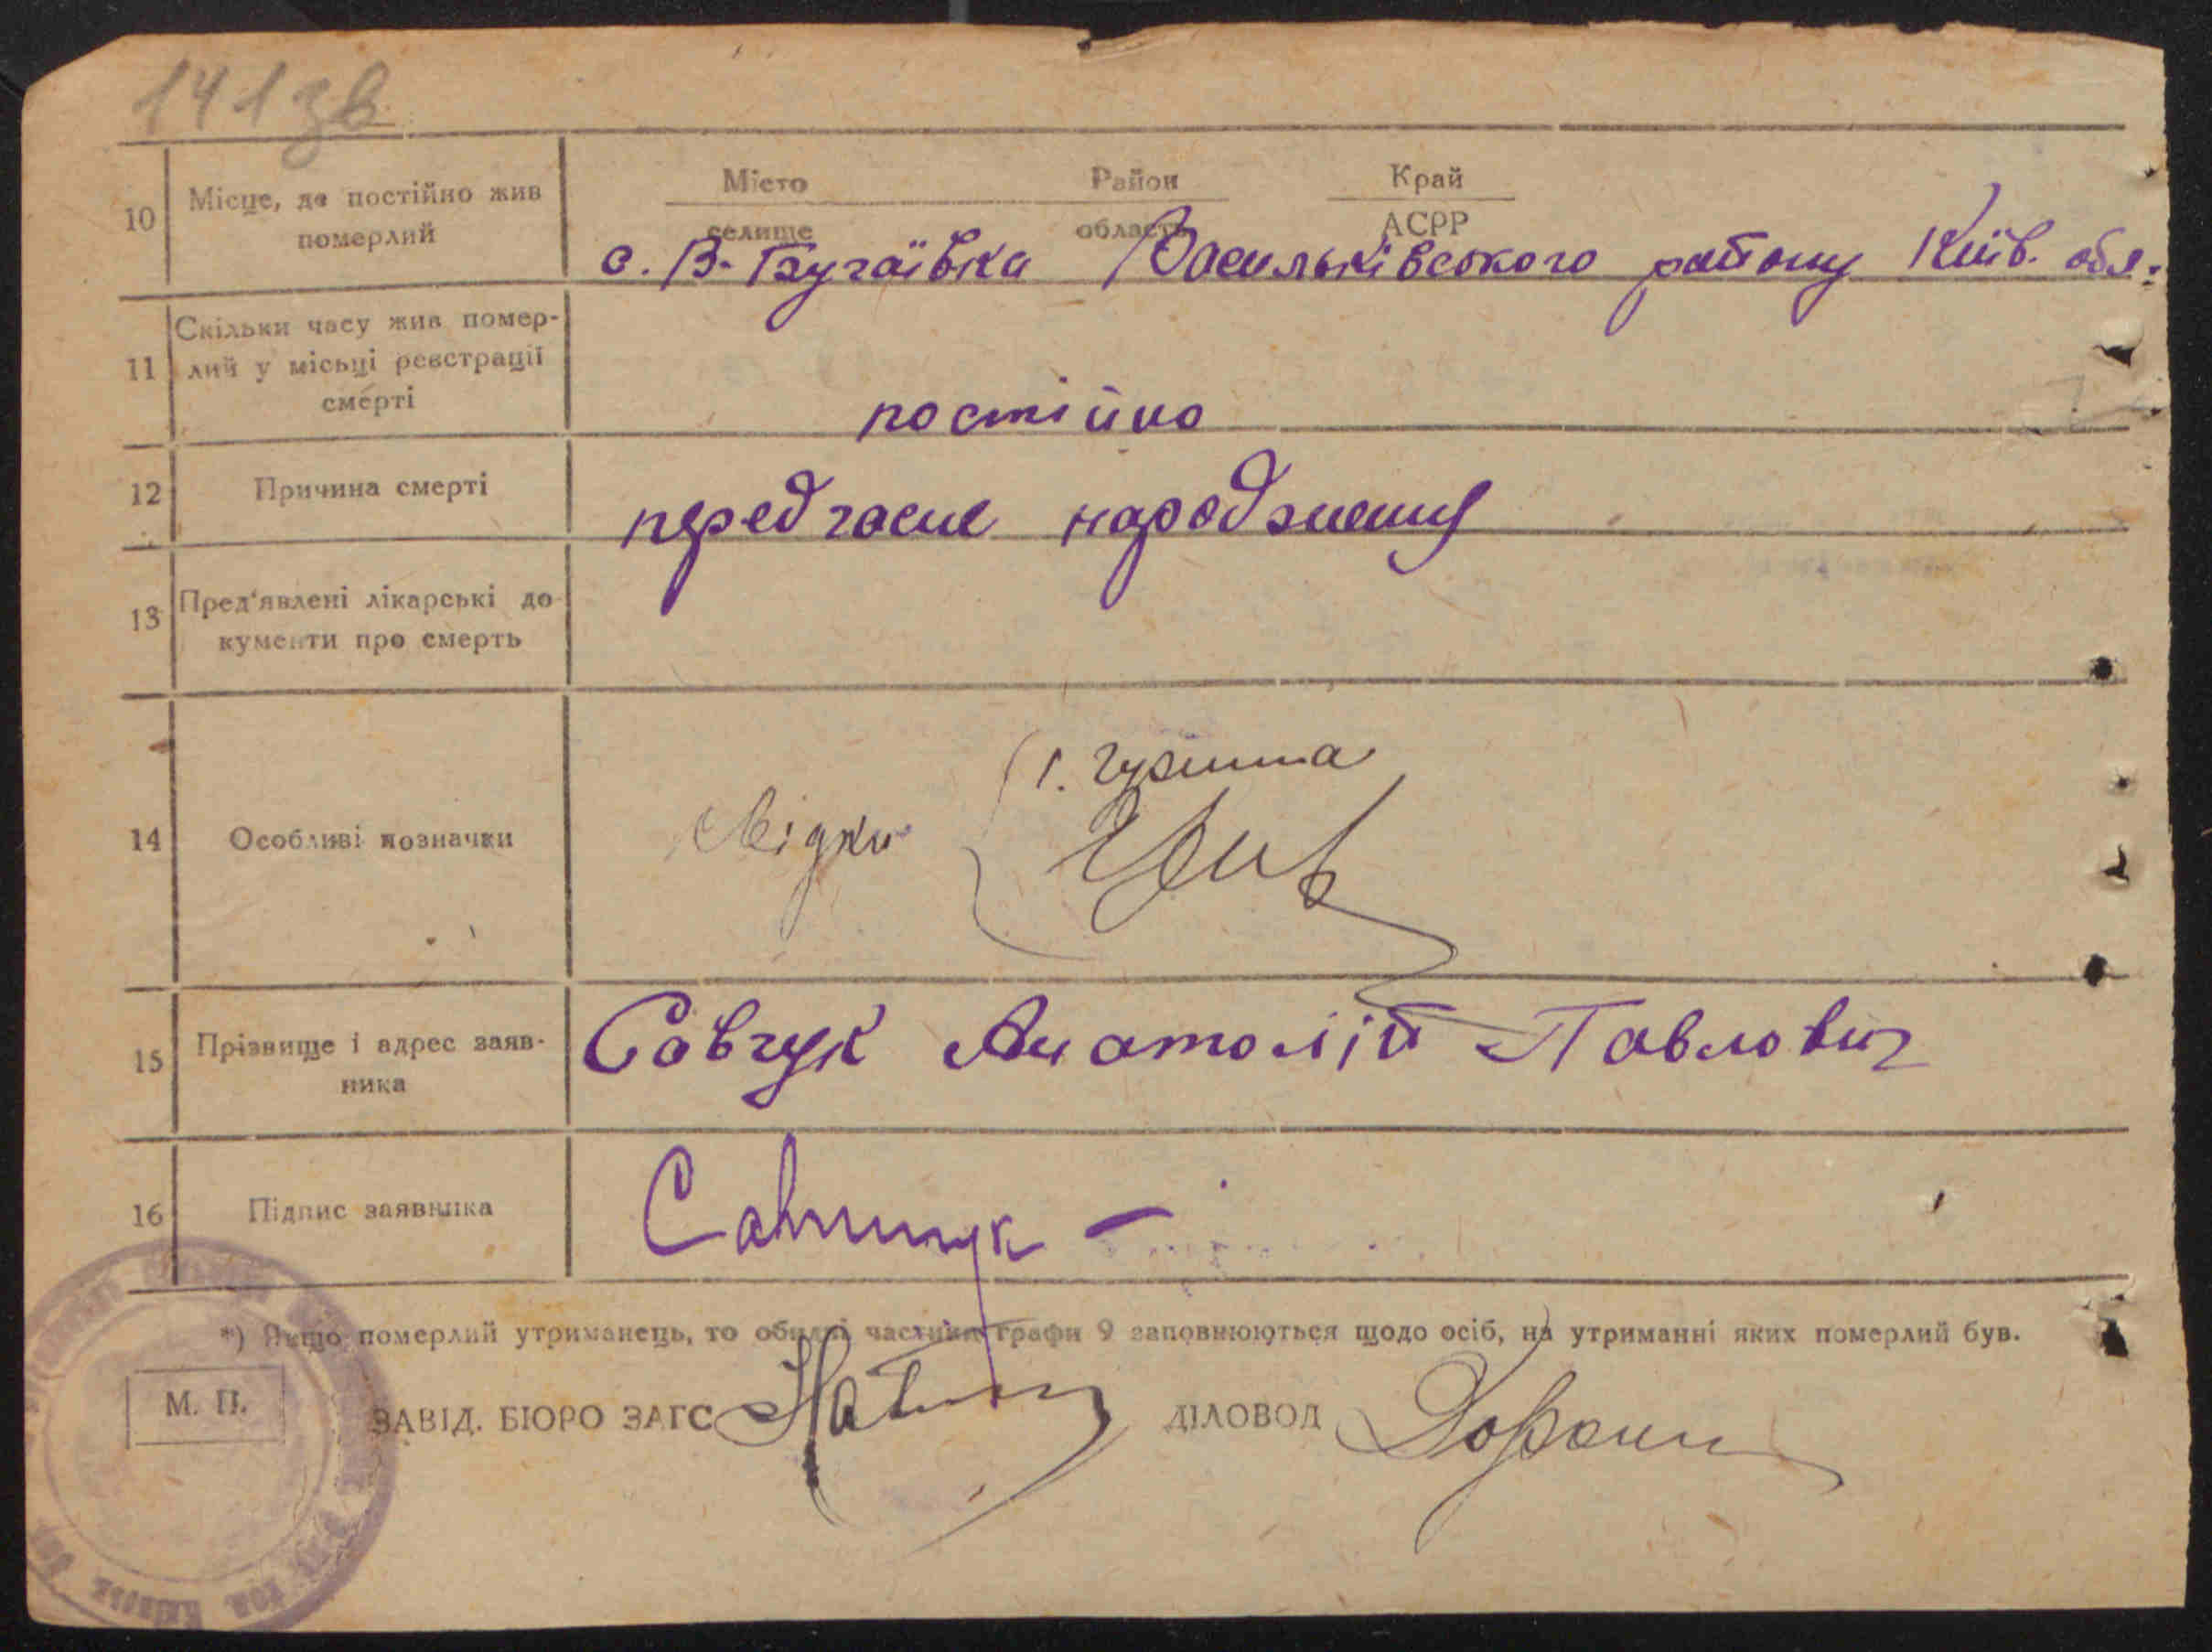 141 зв
Місто Район Край
10 Місце, де постійно жив
померлий
селище область АСРР
с. В-Бугаївка Васильківського району Київ. обл.
11 Скільки часу жив помер-
лий у місьці реєстрації
смерті
постійно
12 Причина смерті
передчасне народження
13 Пред'явлені лікарські до-
кументи про смерть
14 Особливі позначки
Свідки
1.
15 Прізвище і адрес заяв-
ника
Савчук Анатолій Павлович
16 Підпис заявника
Савчук
*) Якщо померлий утриманець, то обидві частини графи 9 заповнюються щодо осіб, на утриманні яких померлий був.
М. П.
ЗАВІД. БЮРО ЗАГС ДІЛОВОД